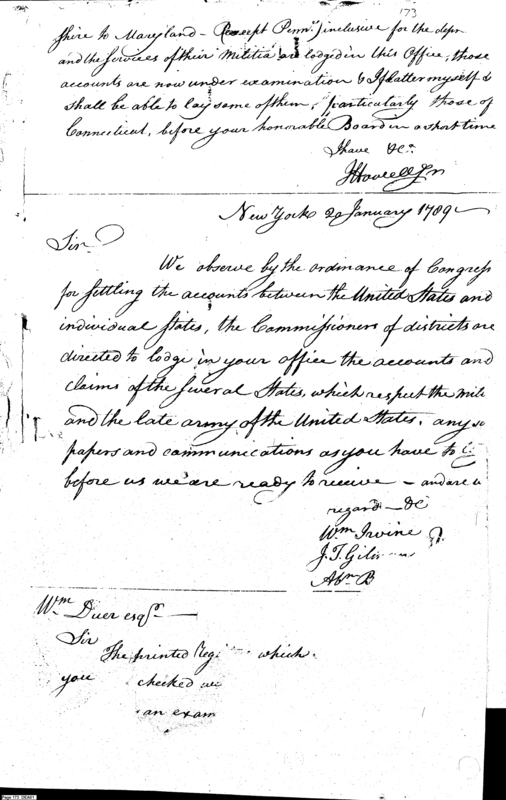 173
shire to Maryland - (except Penna.) inclusive for the depn
and the Services of their Militia are lodged in this Office, those
accounts are now under examination & I flatter myself I
shall be able to lay some of them, particularly those of
Connecticut, before your honorable Board in a short time
I have &ca
J Howell Jn
New York 20 January 1789
Sir
We observe by the ordinance of Congress
for settling the accounts between the United States and
individual States, the Commissioners of districts are
directed to lodge in your office the accounts and
claims of the several States, which respect the mili
and the late army of the United States, any su
papers and communications as you have to
before us we are ready to receive - and are w
regard - &c
Wm Irvine
J. T. Gil
Abm B
Wm Duer esqr.
Sir
The printed Regi which
you checked
an exam